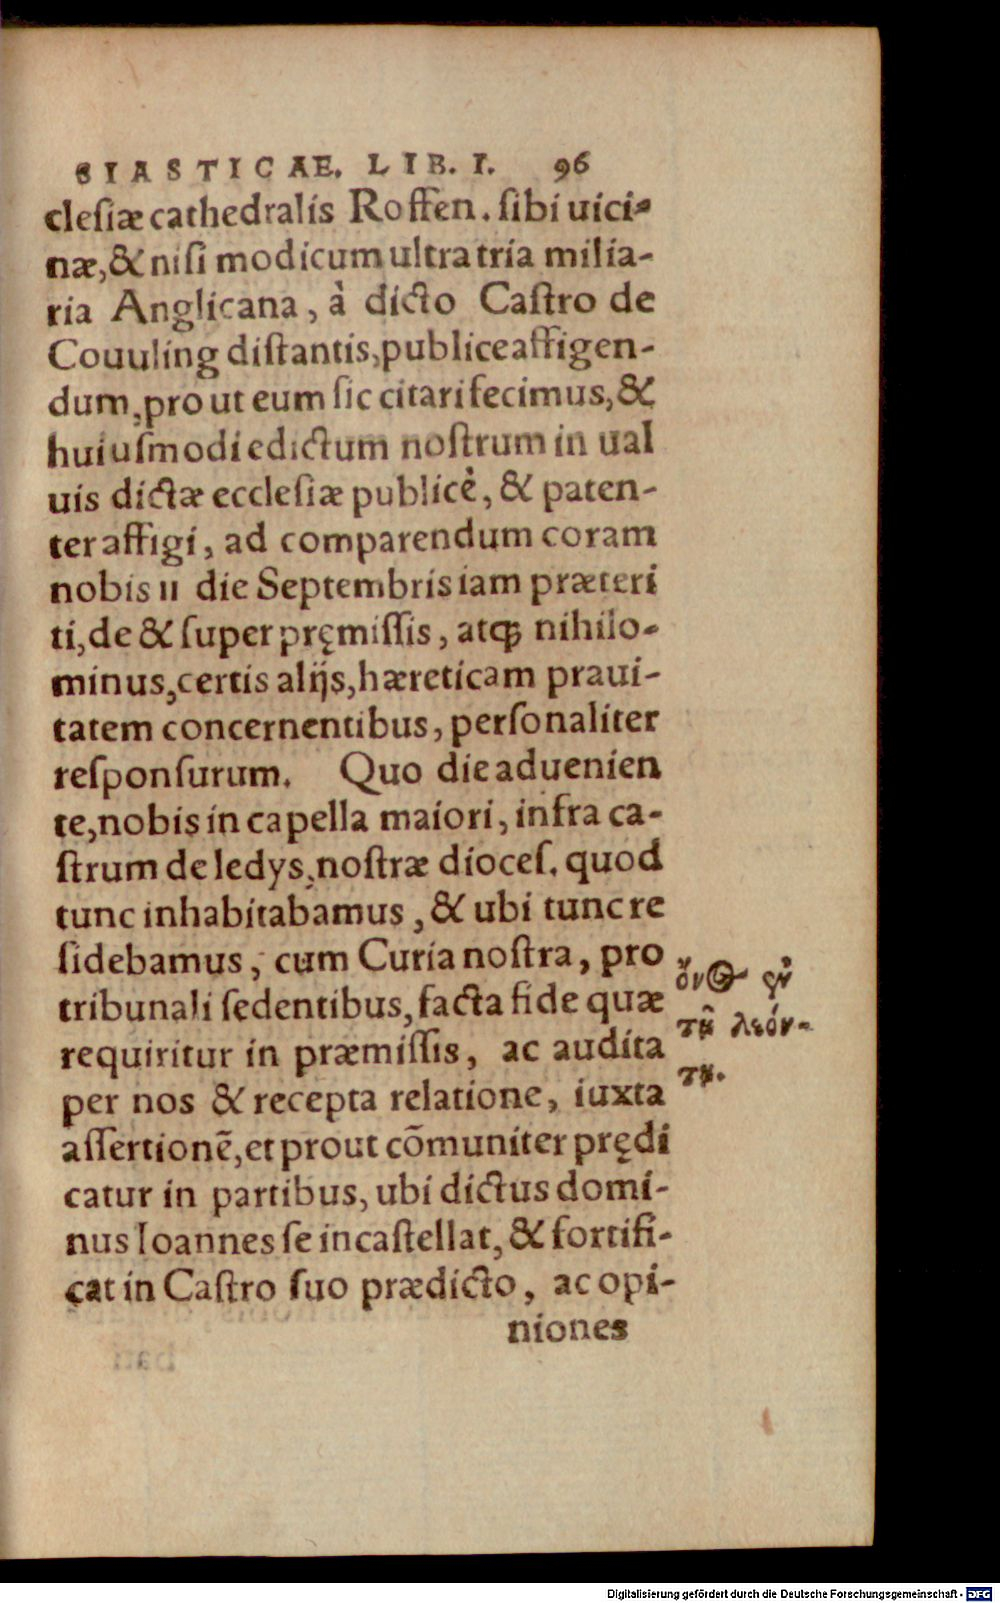 SIASTICAE. LIB. I. 96
clesiæ cathedralis Roffen. sibi uici-
næ, & nisi modicum ultra tria milia-
ria Anglicana, à dicto Castro de
Couuling distantis, publice affigen-
dum, pro ut eum sic citari fecimus, &
huiusmodi edictum nostrum in ual
uis dictæ ecclesiæ publicè, & paten-
ter affigi, ad comparendum coram
nobis 11 die Septembris iam præteri
ti, de & super pręmissis, atq; nihilo-
minus, certis alijs, hæreticam praui-
tatem concernentibus, personaliter
responsurum. Quo die aduenien
te, nobis in capella maiori, infra ca-
strum de ledys, nostræ dioces. quod
tunc inhabitabamus, & ubi tunc re
sidebamus, cum Curia nostra, pro
tribunali sedentibus, facta fide quæ
requiritur in præmissis, ac audita
per nos & recepta relatione, iuxta
assertionē, et prout cōmuniter prędi
catur in partibus, ubi dictus domi-
nus Ioannes se incastellat, & fortifi-
cat in Castro suo prædicto, ac opi-
niones
τȣ͂ λεόν-
τȣ.
Digitalisierung gefördert durch die Deutsche Forschungsgemeinschaft - DFG